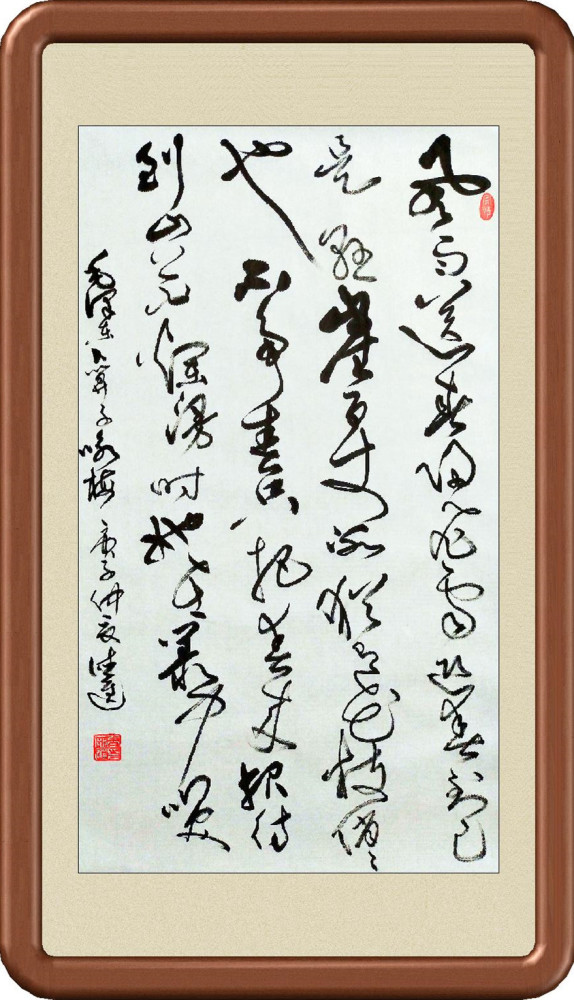 风雨送春归飞雪迎春到已
是悬崖百丈冰犹有花枝俏俏
也不争春只把春来报待
到山花烂漫时她在丛中咲
毛泽东卜算子咏梅 庚子仲夏